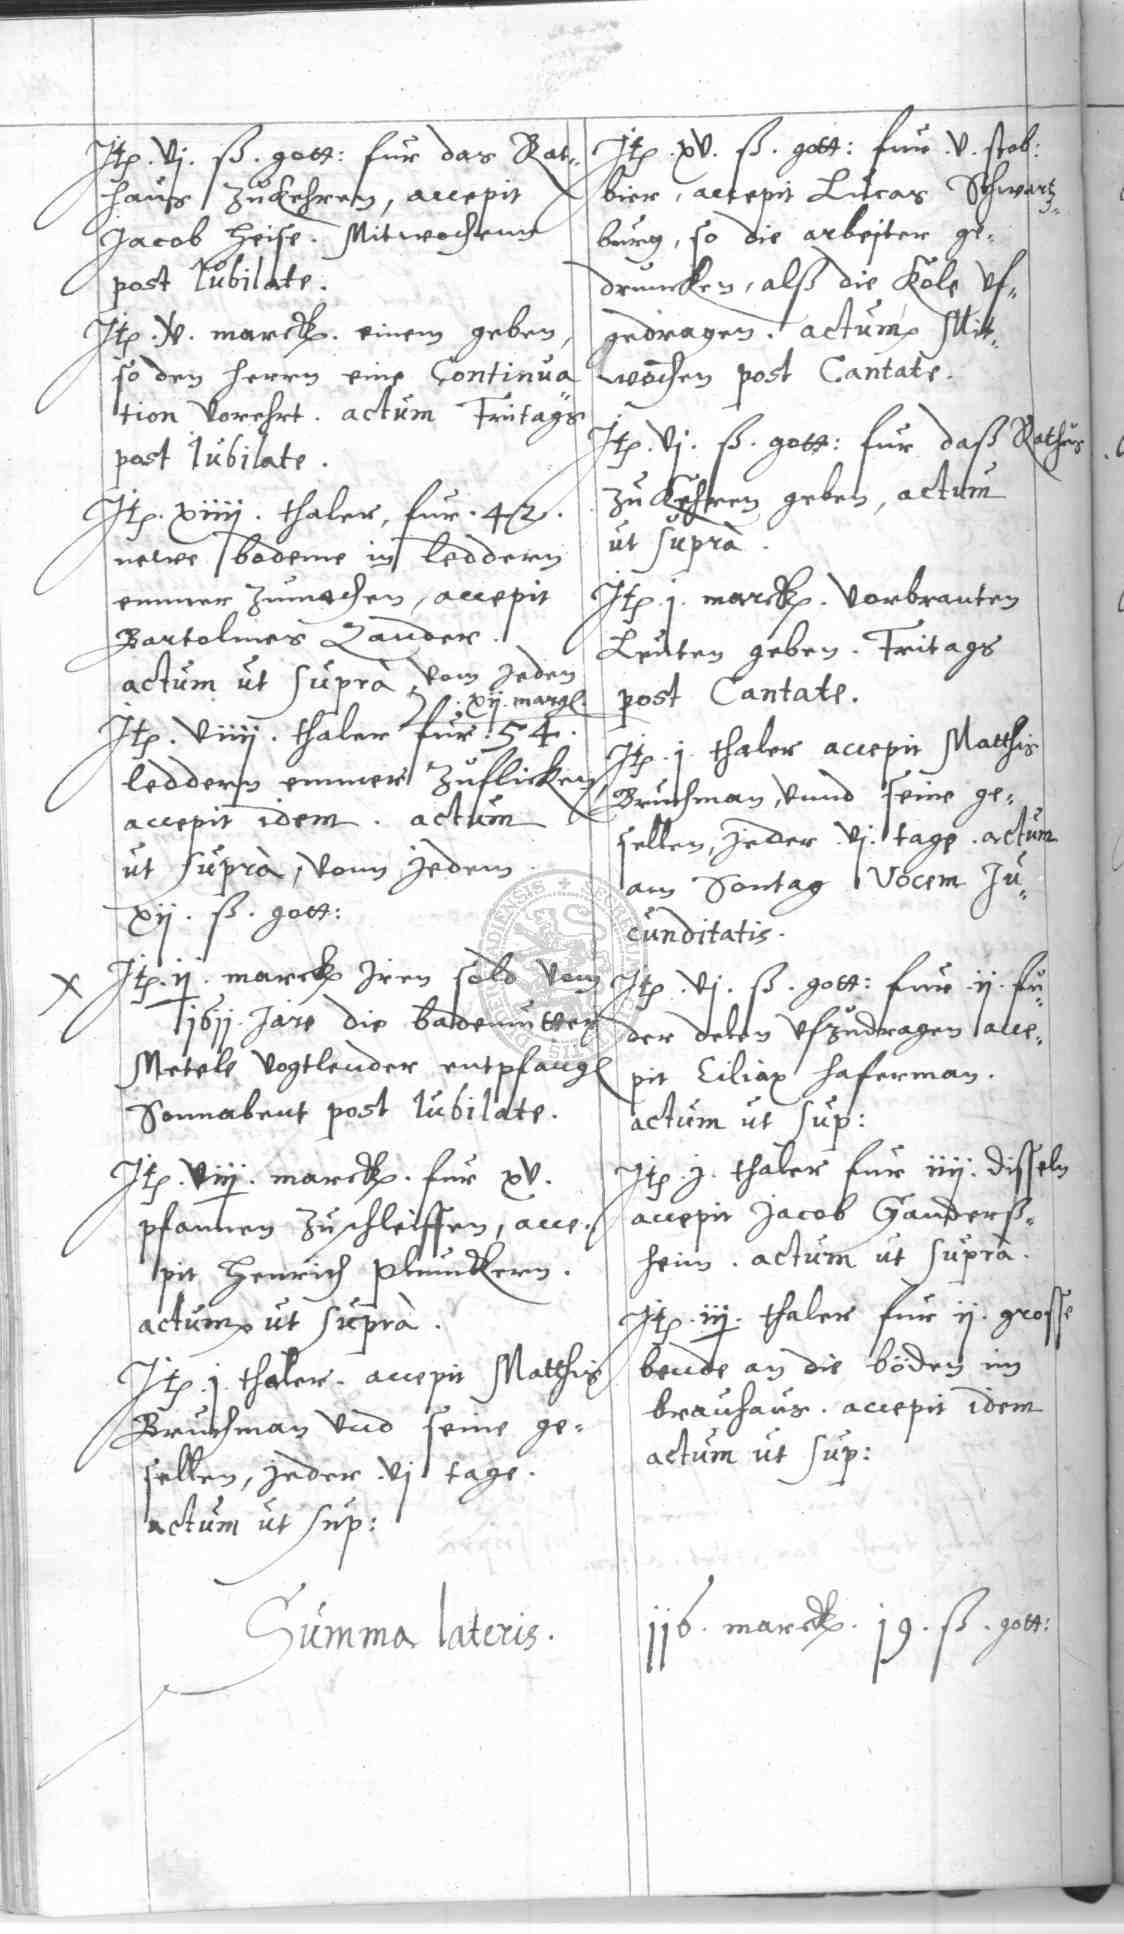 Itē. vj. ß. gott: fur das Rat-
haus zukehren, accepit
Jacob Heise. Mitwochenn
post Iubilate.
Itē. v. marck. einem geben,
so den herrn eine Continua
tion vorehrt. actum Freitags
post Iubilate.
Itē. xiiij. thaler, fur. 42.
newe bodeme in leddern
emmer zumachen, accepit
Bartolmes Zander.
actum ut suprà, vom jeden
xij. margl.
Itē. viiij. thaler fur. 54.
leddern emmer zuflicken,
accepit idem. actum
ut suprà, vonn jedem
xij. ß. gott:
x Itē. ij. marck iren sold vom
1611. Jare die bademutter
Metele Vogtlender entpfang
Sonnabent post Iubilate.
Itē. viij. marck. fur xv.
pfannen zuschleiffen, acce-
pit Henrich Plunckern.
actum ut suprà.
Itē. j. thaler. accepit Matthis
Bruchman und seine ge-
sellen, jeder vj tage.
actum ut sup:
Itē. xv. ß. gott: fur. v. stob:
bier, accepit Lucas Schwartz-
burg, so die arbeiter ge-
druncken, alß die Kole uf-
gedragen. actum Mit-
wochen post Cantate.
Itē. vj. ß. gott: fur daß Rathus
zukehren geben, actum
ut suprà.
Itē. j. marck. vorbranten
Leuten geben. Freitags
post Cantate.
Itē. j. thaler accepit Matthis
Bruchman, unnd seine ge-
sellen, jeder vj. tage. actum
am Sontag Vocem Ju-
cunditatis.
Itē. vj. ß. gott: fur ij. fu-
der delen ufzudragen acce-
pit Ciliax Haferman.
actum ut sup:
Itē. j. thaler fur iiij. disseln
accepit Jacob Ganderß-
heim. actum ut suprà.
Itē. iij. thaler fur ij. grosse
bende an die böden im
brauhaus. accepit idem
actum ut sup:
Summa lateris. 116. marck. 19. ß. gott: